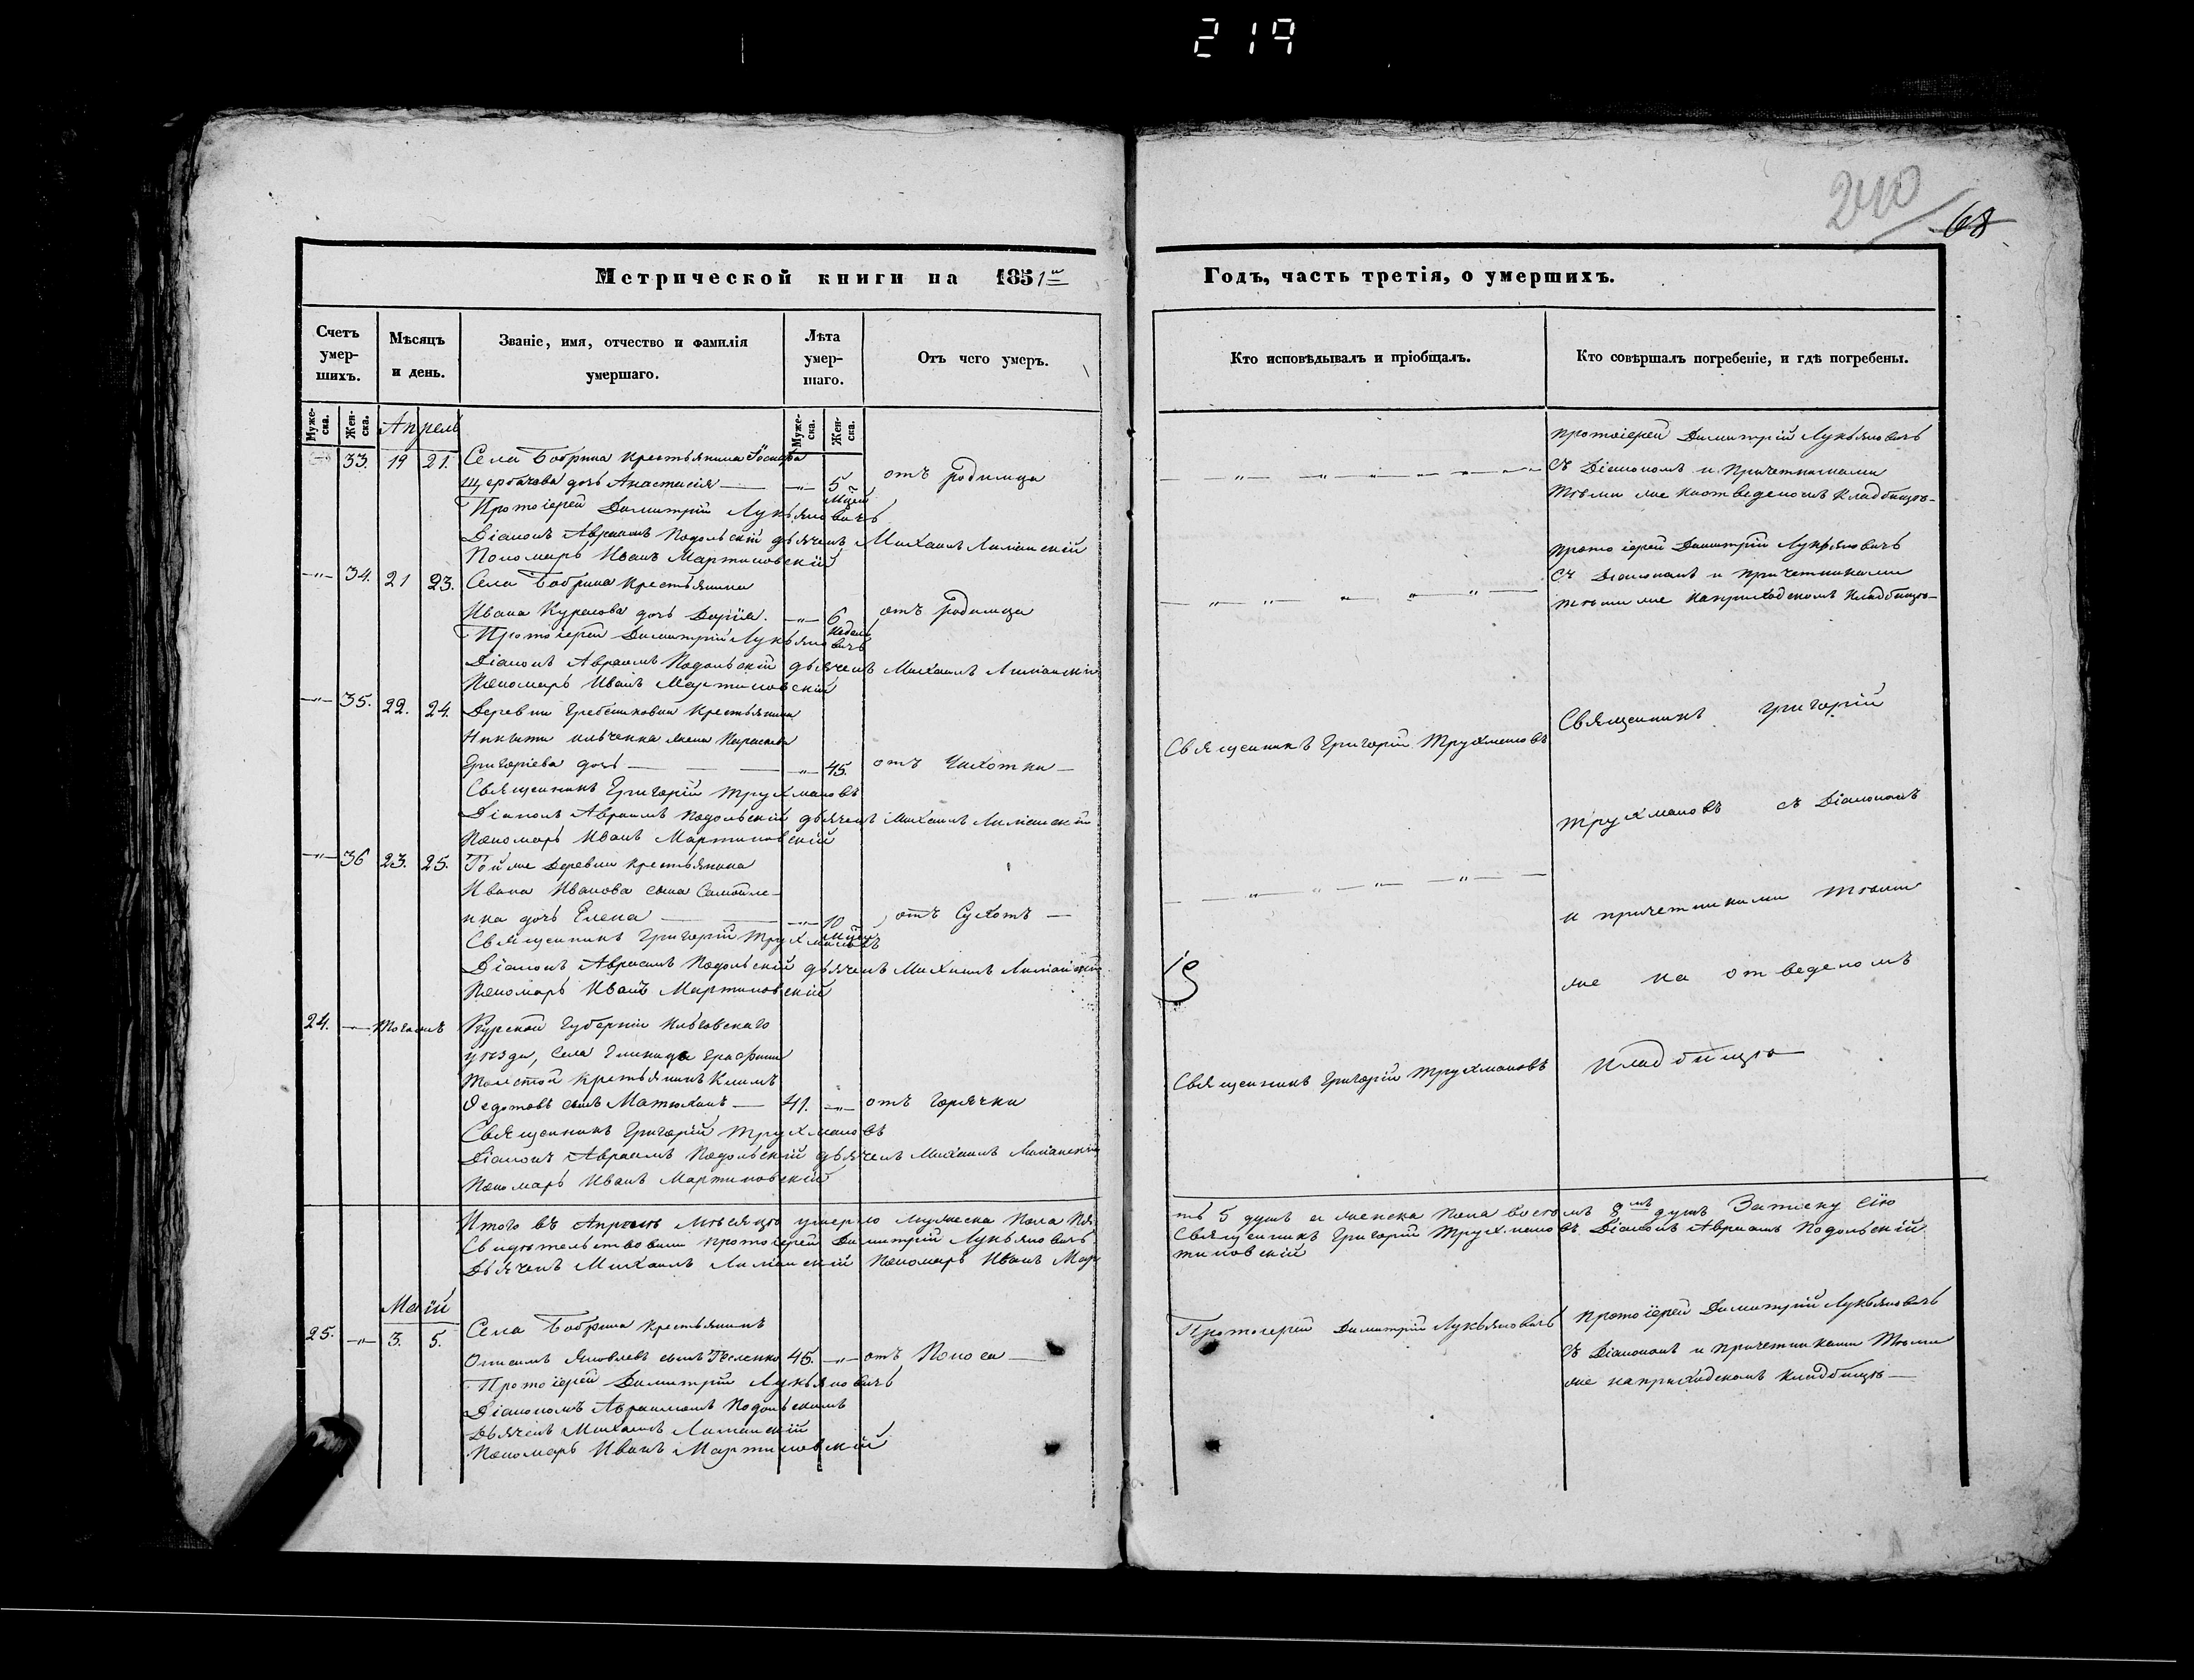 219
240
68
Метрической книги на 1851й
Годъ, часть третія, о умершихъ.
Счетъ умер-шихъ.
Мѣсяцъ и день.
Званіе, имя, отчество и фамилія умершаго.
Лѣта умер-шаго.
Отъ чего умеръ.
Кто исповѣдывалъ и пріобщалъ.
Кто совѣршалъ погребеніе, и гдѣ погребены.
Муже-ска.
Жен-ска.
Муже-ска.
Жен-ска.
Апрель
33. 19 21. Села Бобрика крестьянина
Щербачова дочь Анастасія — 5 отъ родимца
Протоіерей Димитрій Лукьяновичь
Діаконъ Авраамъ Подольскій дьячекъ Михаилъ
Пономарь Иванъ Мартиновскій
протоіерей Димитрій Лукьяновичь
съ Діакономъ и Причетниками
тѣми же на отведеномъ кладбищѣ
34. 21 23. Села Бобрика крестьянина
Ивана дочь Дарія. 6 недель отъ родимца
Протоіерей Димитрій Лукьяновичь
Діаконъ Авраамъ Подольскій дьячекъ Михаилъ
Пономарь Иванъ Мартиновскій
протоіерей Димитрій Лукьяновичь
съ Діакономъ и причетниками
тѣми же на приходскомъ кладбищѣ
35. 22. 24. Деревни крестьянина
Никиты жена
Григоріева дочь — 45. отъ Чахотки
Священникъ Григорій Трухмановъ
Діаконъ Авраамъ Подольскій дьячекъ Михаилъ
Пономарь Иванъ Мартиновскій
Священникъ Григорій Трухмановъ
Священникъ Григорій
Трухмановъ съ Діакономъ
и причетниками тѣми
же на отведеномъ
кладбищѣ
36 23. 25. Той же Деревни крестьянина
Ивана Иванова сына Самойле-
нка дочь Елена — 10 отъ Сухотъ —
Священникъ Григорій Трухмановъ
Діаконъ Авраамъ Подольскій дьячекъ Михаилъ
Пономарь Иванъ Мартиновскій
24. Курской Губерніи Льговскаго
уѣзда, села Графини
Толстой крестьянинъ Климъ
Федотовъ сынъ — 41. отъ горячки
Священникъ Григорій Трухмановъ
Діаконъ Авраамъ Подольскій дьячекъ Михаилъ
Пономарь Иванъ Мартиновскій
Священникъ Григорій Трухмановъ
Итого въ Апрелѣ мѣсяцѣ умерло мужеска пола пять 5 душъ а женска пола восемь 8мъ душъ Записку сію
Свидѣтельствовали протоіерей Димитрій Лукьяновичь Священникъ Григорій Трухмановъ Діаконъ Авраамъ Подольскій
Дьячекъ Михаилъ Пономарь Иванъ Мартиновскій
Маій
25. 3. 5. Села Бобрика крестьянинъ
Яковлевъ сынъ 45. отъ Поноса —
Протоіерей Димитрій Лукьяновичь
Діакономъ Авраамомъ Подольскимъ
Дьячекъ Михаилъ
Пономарь Иванъ Мартиновскій
Протоіерей Димитрій Лукьяновичь
протоіерей Димитрій Лукьяновичь
съ Діакономъ и причетниками тѣми
же на приходскомъ кладбищѣ —